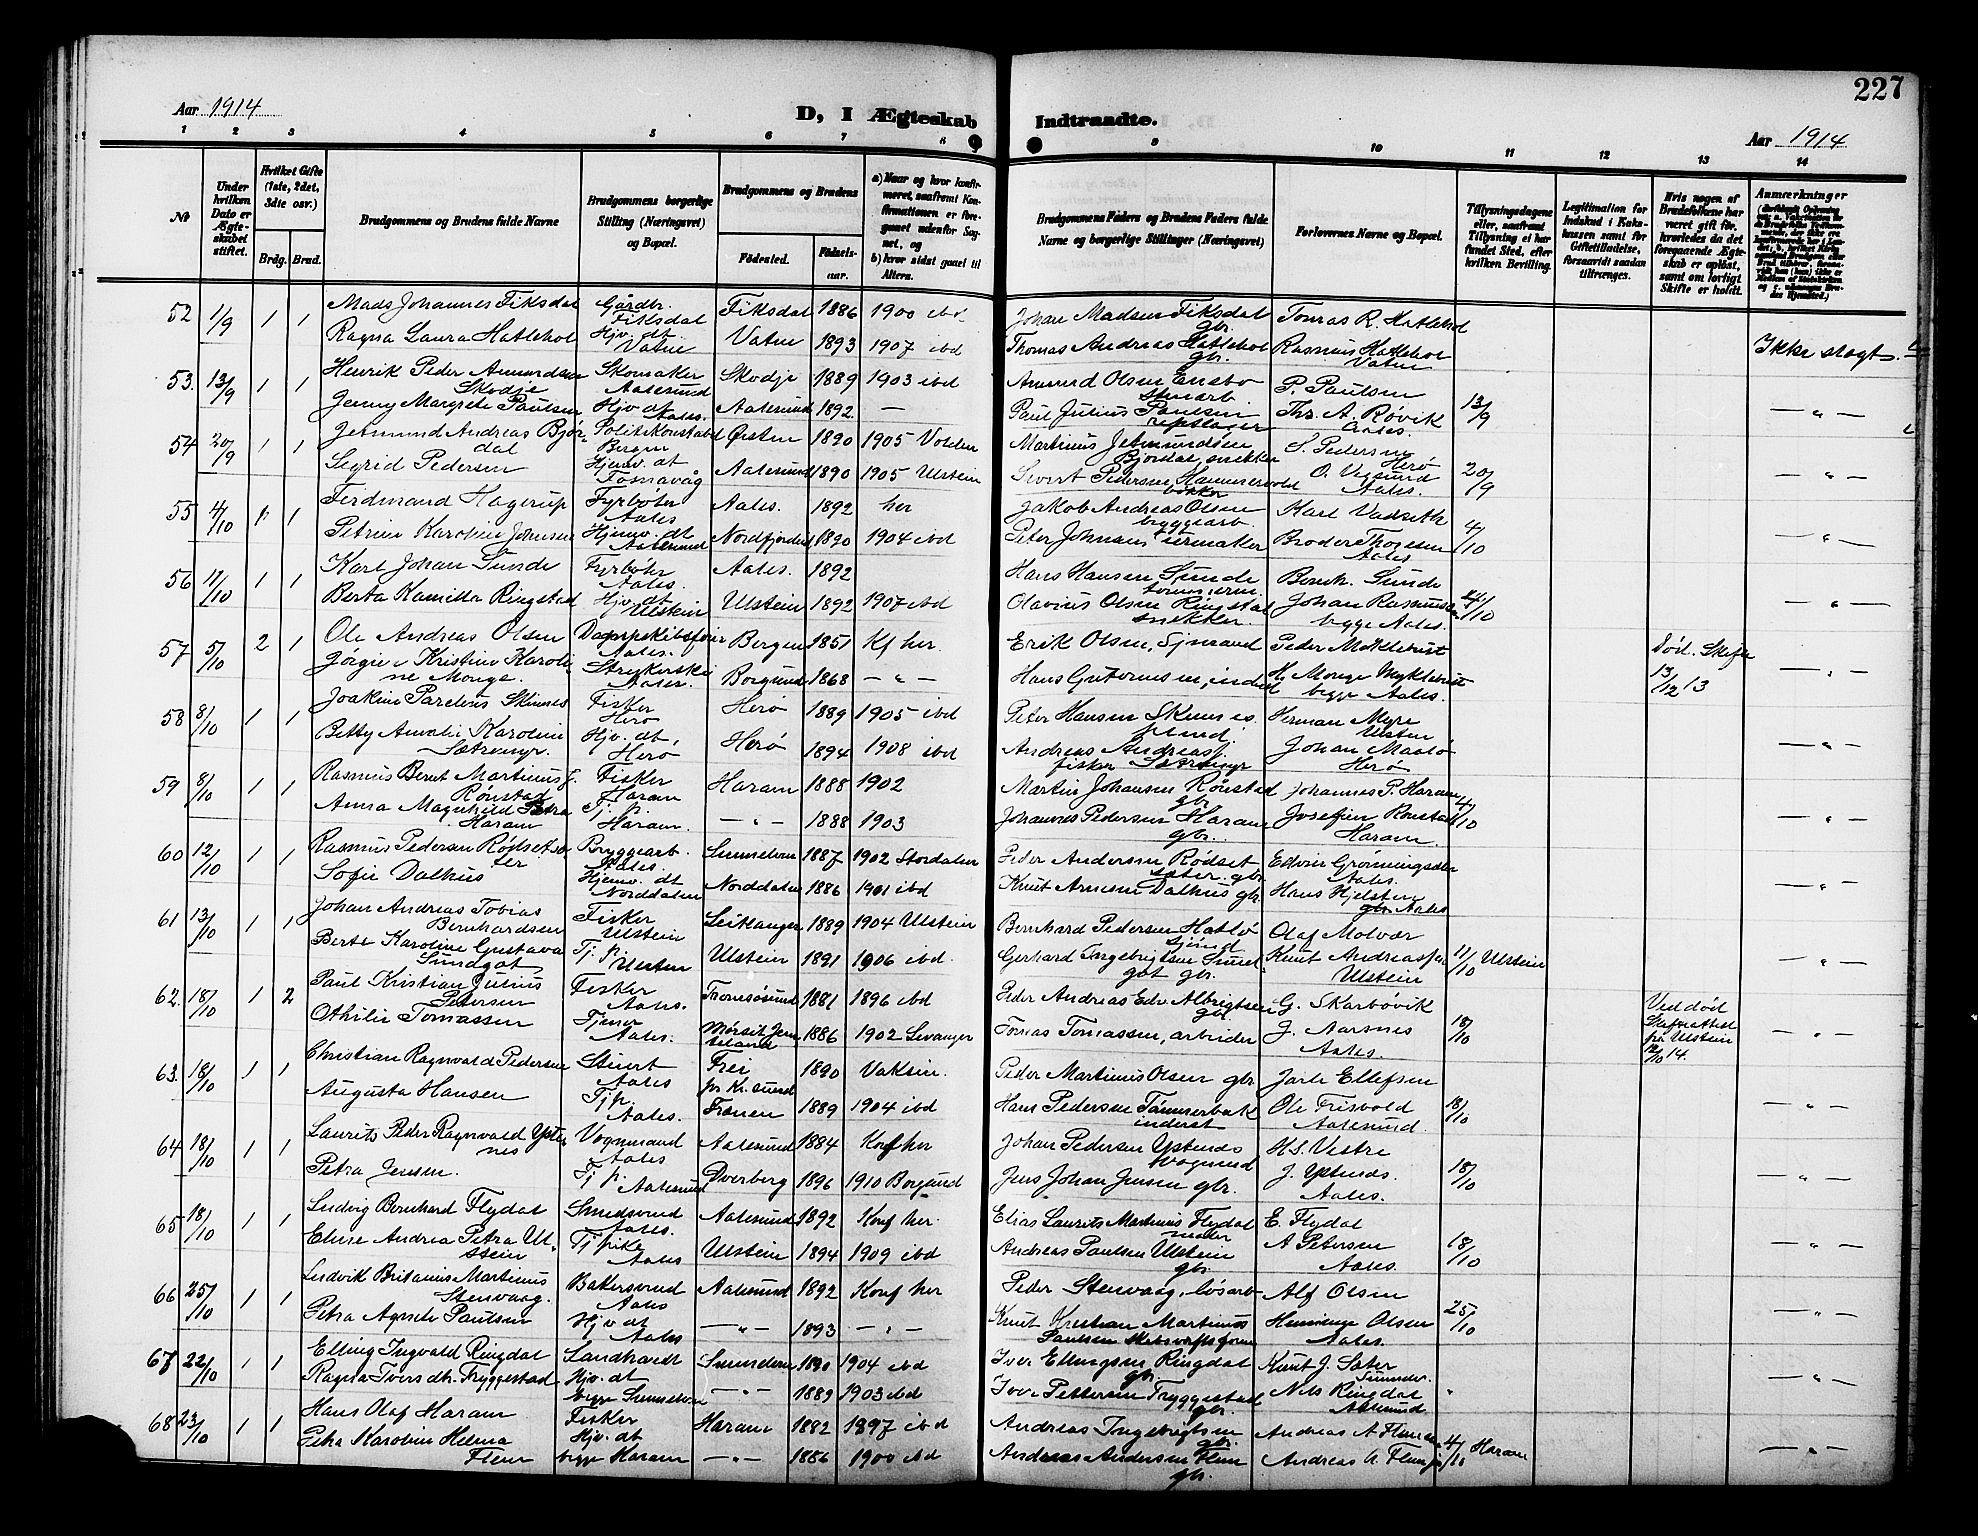 227
Aar 1914
D, I Ægteskab Indtraadte.
Aar 1914
1 2 3 4 5 6 7 8 9 10 11 12 13 14
No
Under hvilken Dato er Ægteskabet stiftet.
Hvilket Gifte (1ste, 2det, 3die osv.)
Brdg. Brud.
Brudgommens og Brudens fulde Navne
Brudgommens borgerlige Stilling (Næringsvei) og Bopæl.
Brudgommens og Brudens
Fødested. Fødselsaar.
a) Naar og hvor konfirmeret, saafremt Konfirmationen er foregaaet udenfor Sognet, og
b) hvor sidst gaaet til Alters.
Brudgommens Faders og Brudens Faders fulde Navne og borgerlige Stillinger (Næringsvei)
Forlovernes Navne og Bopæl.
Tillysningsdagene eller, saafremt Tillysning ei har fundet Sted, efter hvilken Bevilling.
Legitimation for Indskud i Enkekassen samt for Giftetilladelse, forsaavidt saadan tiltrænges.
Hvis nogen af Brudefolkene har været gift før, hvorledes da det foregaaende Ægteskab er opløst, samt om lovligt Skifte er holdt.
Anmærkninger
52 1/9 1 1 Mads Johannes Fiksdal Gårdbr. Fiksdal Fiksdal 1886 1900 ibd. Johan Madsen Fiksdal gbr. Tomas R. Hatlehol
Ragna Laura Hatlehol Hjv. dt Vatne Vatne 1893 1907 ibd Thomas Andreas Hatlehol gbr. Rasmus Hatlehol Vatne Ikke slægt.
53. 13/9 1 1 Henrik Peder Amundsen Skodje Skomaker Aalesund Skodje 1889 1903 ibd Amund Olsen P. Paulsen
Jenny Margrete Paulsen Hjv. dt Aales. Aalesund 1892 — Paul Julius Paulsen repslager Thr. A. Røvik Aales. 13/9 — " —
54 20/9 1 1 Jetmund Andreas Bjørdal Politikonstabel Bergen Ørsten 1890 1905 Volden Martinus Jetmundsen Bjørdal, snekker S. Pedersen Herø
Sigrid Pedersen Hjemv. dt Fosnavåg Aalesund 1890 1905 Ulstein Sivert Pedersen O. Vegsund Aales. 20/9 — " —
55 4/10 1 1 Ferdinand Hagerup Fyrbøter Aales Aales. 1892 her Jakob Andreas Olsen byggearb. Karl Vadseth
Petrine Karoline Johansen Hjemv. dt Aalesund Nordfjordeid 1890 1904 ibd Peter Johnans urmaker Broder Thoresen Aales. 4/10 — " —
56 1 1 Karl Johan Sunde Fyrbøter Aales. Aales. 1892 Hans Hansen Sunde Bernh. Sunde
Berta Kamilla Ringstad Hjv. dt Ulstein Ulstein 1892 1907 ibd Olavius Olsen Ringstad snekker. Johan Rasmussen begge Aales. — " —
57 5/10 2 1 Ole Andreas Olsen Dampskibsfører Aales. Bergen 1851 Kf her. Erik Olsen, Sjømand Peder Myklebust Død. Skifte
Jørgine Kristine Karoline Monge. Aales. Borgund 1868 — " — Hans Guttormsen, inderst H. Monge Myklebust begge Aales. 13/12 13 — " —
58 8/10 1 1 Joakim Parelius Fisker Herø Herø 1889 1905 ibd Peter Hansen Herman Myre Ulstein
Betty Amalie Karoline Sætremyr. Hjv. dt. Herø Herø 1894 1908 ibd Andreas Andreas. fisker Sætremyr Johan Herø — " —
59 8/10 1 1 Rasmus Bernt Martinus J. Rønstad Fisker Haram Haram 1888 1902 Martin Johansen Rønstad gbr Johannes P. Haram
Anna Magnhild Petra Haram Tj. p. Haram. — " — 1888 1903 Johannes Pedersen Haram gbr. Josefine Rønstad Haram. 4/10 — " —
60 12/10 1 1 Rasmus Pedersen Rødsetsæter Bryggearb. Aales. Sunnelven 1887 1902 Stordalen Peder Andersen Rødsetsæter gbr Edvin Grønningsæter Aales.
Sofie Dalhus Hjemv. dt Norddalen Norddalen 1886 1901 ibd Knut Arnesen Dalhus gbr. Hans Hjelsten Aales — " —
61 13/10 1 1 Johan Andreas Tobias Bernhardsen Fisker Ulstein Leikanger 1889 1904 Ulstein Bernhard Pedersen Hatlø sjømd Olaf Molvær
Berte Karoline Gustava Sundgot Tj. p. Ulsten Ulstein 1891 1906 ibd. Gerhard Ingebrigtsen Sundgot gbr. Knut Andreassen Ulstein 11/10 Ulstein — " —
62. 18/10 1 2 Paul Kristian Julius Petersen Fisker Aales. Tromsøsund 1881 1896 ibd Peder Andreas Edv. Albrigtsen gbr. G. Skarbøvik Ved død
Othilie Tomassen Tjener Aales. 1886 1902 Levanger Tomas Tomassen, arbeider J. Aarsnes Aales. 18/10 Skifteattest fra Ulstein 12/10 14. — " —
63. 18/10 1 1 Christian Ragnvald Pedersen Stuert Aales Frei pr Kr. sund 1890 Vaksin. Peder Martinus Olsen gbr Jarle Ellefsen
Augusta Hansen Tj. p. Aales. Frænen 1889 1904 ibd Hans Pedersen Tømmerbak inderst Ole Frisvold Aalesund. 18/10 — " —
64 18/10 1 1 Laurits Peder Ragnvald Ystenes Vognmand Aales Aalesund 1884 Konf her Johan Pedersen Ystenes Vognmd H.S. Vestre
Petra Jensen. Tj p. Aalesund Dverberg 1896 1910 Borgund Jens Johan Jensen gbr. J. Ystenes Aales. 18/10 — " —
65 18/10 1 1 Ludvig Bernhard Flydal Smedsvend Aales. Aalesund 1892 Konf her. Elias Laurits Martinus Flydal maler E. Flydal
Eline Andrea Petra Ulstein Tj. pike Aales Ulstein 1894 1909 ibd Andreas Paulsen Ulstein gbr. A Petersen Aales. 18/10 — " —
66 25/10 1 1 Ludvik Britanius Martinus Stenvaag. Bakersvend Aales Aalesund 1892 Konf her Peder Stenvaag, løsarb Alf Olsen
Petra Agnete Paulsen Hjv dt Aales — " — 1893 — " — Knut Kristian Martinus Paulsen Henninge Olsen Aales. 25/10 — " —
67 22/10 1 1 Elling Ingvald Ringdal Landhandl Sunnelven 1890 1904 ibd Iver Ellingsen Ringdal gbr. Knut J. Sæter Sunnelv.
Ragna Iversdtr. Tryggestad Hjv. dt begge Sunnelven — " — 1889 1903 ibd Iver Pettersen Tryggestad gbr. Nils Ringdal Aalesund. " — " —
68 23/10 1 1 Hans Olaf Haram Fisker Haram 1882 1897 ibd Andreas Ingebrigtsen gbr. Andreas A Flem
Petra Karoline Helena Flem Hjv. dt begge Haram — " — 1886 1900 ibd Andreas Andersen Flem gbr. Andreas A. Flem 4/10 Haram — " —